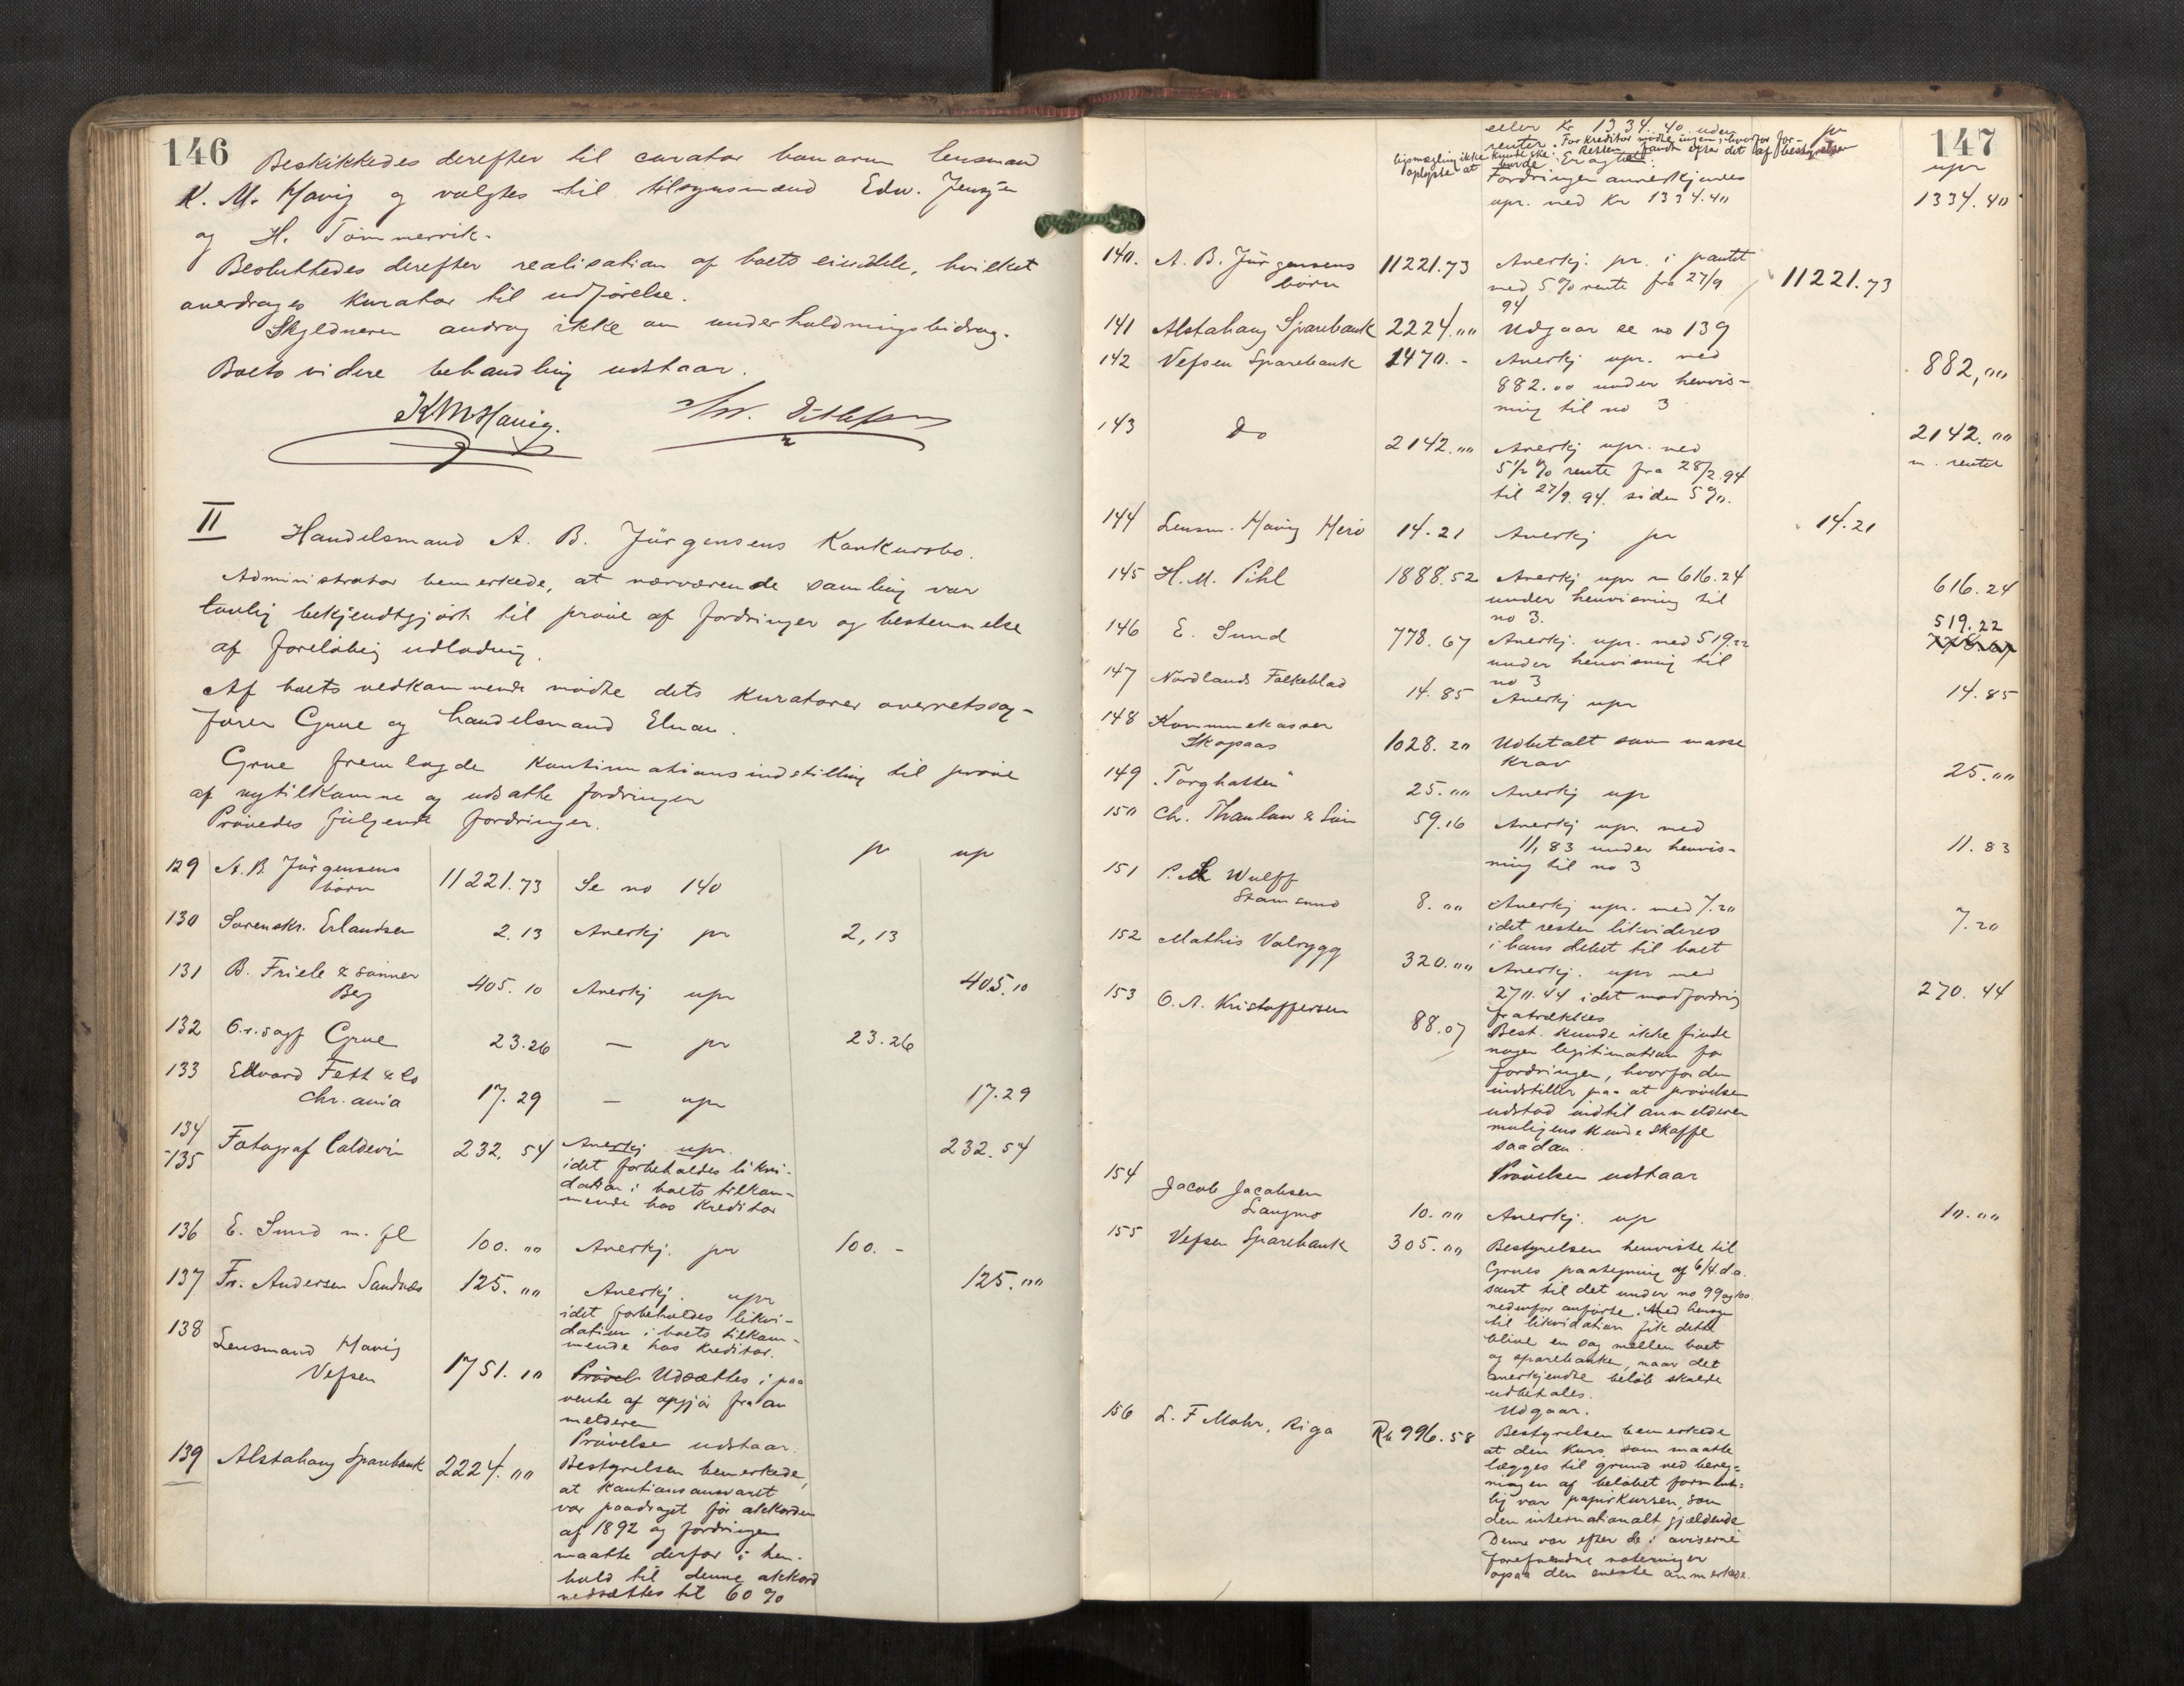 146
Beskikkedes derefter til curator bonorum lensmand
K. M. Havig og valgtes til tilsynsmænd Edv. Jensen
og H. Tømmervik.
Besluttedes derefter realisation af boets eiendele, hvilket
overdrages kurator til udførelse.
Skyldneren androg ikke om underholdningsbidrag.
Boets videre behandling udstaar.
KMHavig.
II Handelsmand A. B. Jürgensens Konkursbo.
Administrator bemerkede, at nærværende samling var
lovlig bekjendtgjort til prøve af fordringer og bestemmelse
af foreløbig udlodning.
Af boets vedkommende mødte dets kuratorer overretssag-
fører Grue og handelsmand Elnan.
Grue fremlagde kontinuationsindstilling til prøve
af nytilkomne og udsatte fordringer
Prøvedes følgende fordringer.
pr upr
129 A. B. Jürgensens
børn 11221.73 Se no 140
130 Sorenskr. Erlandsen 2.13 Anerkj pr 2,13
131 B. Friele & sønner
Berg 405.10 Anerkj upr 405.10
132 O.r.sagf Grue 23.26 — pr 23.26
133 Edvard Fett & Co
Chr.ania 17.29 — upr 17.29
134
-135 Fotograf Caldevin 232.54 Anerkj upr. 232.54
idet forbeholdes likvi-
dation i boets tilkom-
mende hos kreditor
136 E. Sund m. fl 100.00 Anerkj. pr 100.-
137 Fr. Andersen Sandnes 125.00 Anerkj. upr 125.00
idet forbeholdes likvi-
dation i boets tilkom-
mende hos kreditor.
138 Lensmand Havig
Vefsen 1751.10 Prøvel Udsættes i paa
vente af opgjør fra an
melderen
Prøvelse udstaar.
139 Alstahoug Sparebank 2224.00 Bestyrelsen bemerkede,
at kautionsansvaret
var paadraget før akkorden
af 1892 og fordringen
maatte derfor i hen-
hold til denne akkord
nedsættes til 60 %
147
eller kr 1334.40 uden pr
renter. For kreditor mødte ingen, hvorfor for-
ligsmægling ikke kunde ske. Retten fandt efter det af bestyrelsen
oplyste at burde Eragte: upr
Fordringen anerkjendes
upr. med kr 1334.40 1334.40
140. A. B. Jürgensens
børn 11221.73 Anerkj. pr. i pantet
med 5 % rente fra 27/9
94 11221.73
141 Alstahoug Sparebank 2224.00 Udgaar se no 139
142 Vefsen Sparebank 1470.- Anerkj upr. med
882.00 under henvis-
ning til no 3 882,00
143 Do 2142.00 Anerkj upr. med
5½ % rente fra 28/2.94
til 27/9.94. siden 5 %. 2142.00
m. renter
144 Lensm. Havig Herø 14.21 Anerkj pr 14.21
145 H. M. Pihl 1888.52 Anerkj upr m 616.24
under henvisning til
no 3. 616.24
146 E. Sund 778.67 Anerkj. upr. med 519.22
under henvisning til
no 3 519.22
778.67
147 Nordlands Folkeblad 14.85 Anerkj upr 14.85
148 Kommunekasser
Skopaas 1028.20 Udbetalt som masse
krav
149 "Torghatten" 25.00 Anerkj up 25.00
150 Ch. Thaulow & Søn 59.16 Anerkj upr. med
11,83 under henvis-
ning til no 3 11.83
151 Wulff
Stamsund 8.00 Anerkj upr. med 7.20
idet resten likvideres
i hans debet til boet 7.20
152 Mathis Valrygg 320.00 Anerkj. upr med
270.44 idet modfordring
fratrækkes 270.44
153 O. A. Kristoffersen 88.07 Best. kunde ikke finde
nogen legitimation for
fordringen, hvorfor den
indstiller paa at prøvelsen
udstod indtil anmelderen
muligens kunde skaffe
saadan.
Prøvelsen udstaar
154 Jacob Jacobsen
Langmo 10.00 Anerkj. up 10.00
155 Vefsen Sparebank 305.00 Bestyrelsen henviste til
Grues paategning af 6/4 d.a.
samt til det under no 99 og 100.
nedenfor anførte. Med hensyn
til likvidation fik dette
blive en sag mellem boet
og sparebanken, naar det
anerkjendte beløb skulde
udbetales.
Udgaar.
156 L. F Mohr, Riga Rb 996.58 Bestyrelsen bemerkede
at den kurs, som maatte
lægges til grund ved bereg-
ningen af beløbet forment-
lig var papirkursen, som
den internationalt gjældende
Denne var efter de i aviserne
forefundne noteringer
ogsaa den eneste anmerkede.